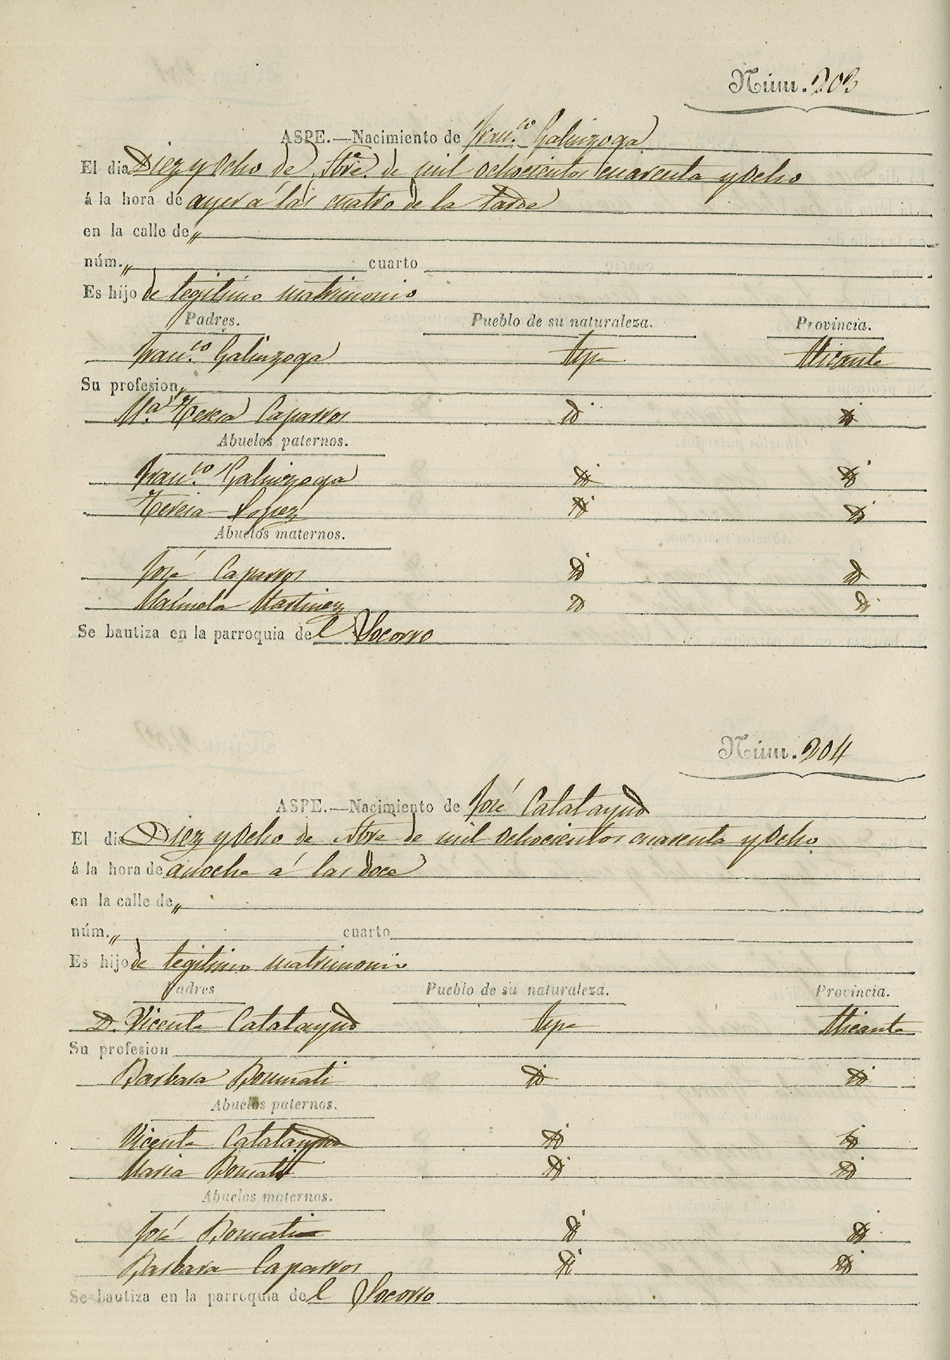 Núm. 203
ASPE.—Nacimiento de Fran.co Galinzoga
El dia Diez y Ocho de de mil ochocientos cuarenta y Ocho
á la hora de ayer á las cuatro de la tarde
en la calle de „
núm. „ cuarto
Es hijo de legitimo matrimonio
Padres. Pueblo de su naturaleza. Provincia.
Fran.co Galinzoga Aspe Alicante
Su profesion „
M.a Teresa Caparros id id
Abuelos paternos.
Fran.co Galinzoga id id
Teresa Lopez id id
Abuelos maternos.
José Caparros id id
Manuela Martinez id id
Se bautiza en la parroquia de l Socorro
Núm. 204
ASPE.—Nacimiento de José Calatayud
El dia Diez y Ocho de de mil ochocientos cuarenta y Ocho
á la hora de anoche á las doce
en la calle de „
núm. „ cuarto
Es hijo de legitimo matrimonio
Padres Pueblo de su naturaleza. Provincia.
D. Vicente Calatayud Aspe Alicante
Su profesion
Barbara Bonmati id id
Abuelos paternos.
Vicente Calatayud id id
Maria Bonmati id id
Abuelos maternos.
José Bonmati id id
Barbara Caparros id id
Se bautiza en la parroquia de l Socorro